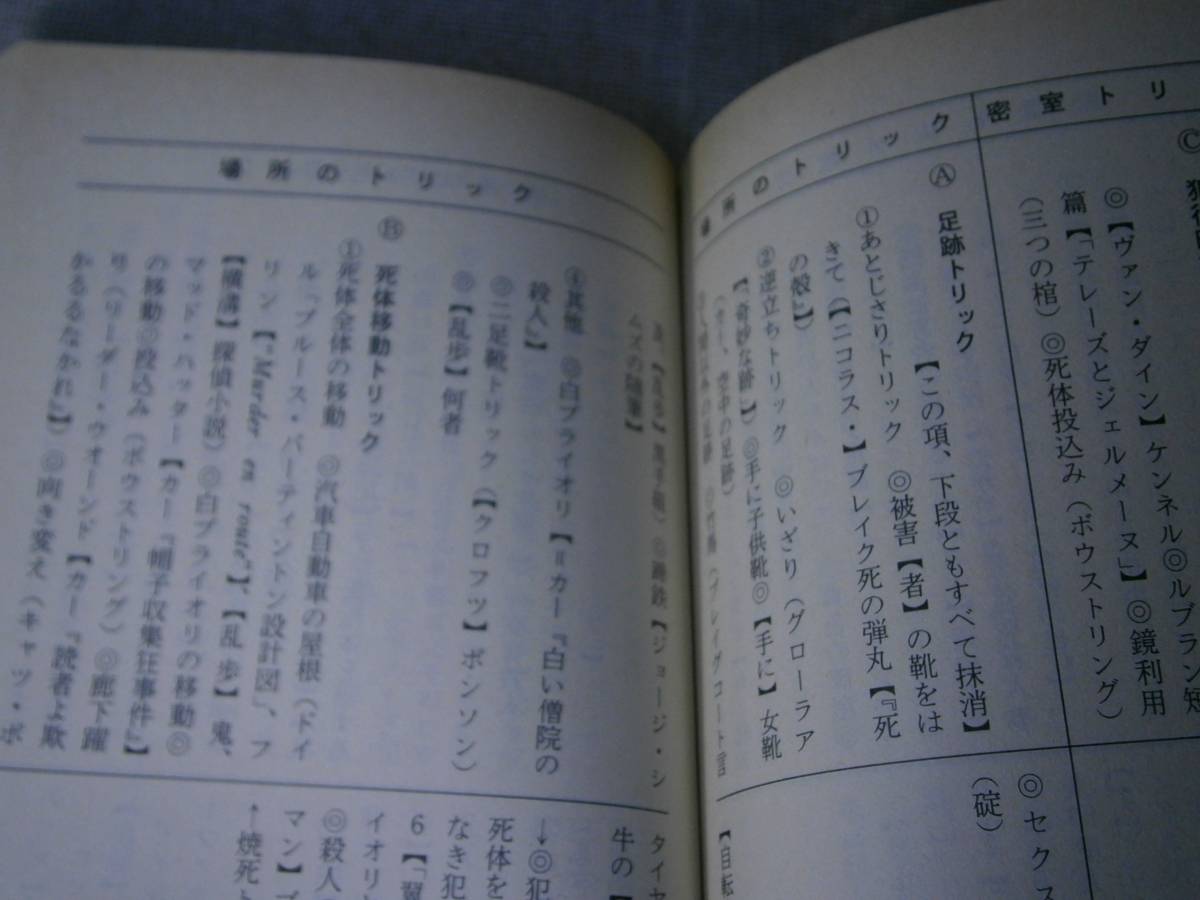 密室トリ
Ⓒ
◎【ヴァン・ダイン】ケンネル◎ルブラン短
篇【「テレーズとジェルメーヌ」】◎鏡利用
（三つの棺）◎死体投込み（ボウストリング）
◎セクス
（碇）
場所のトリック
Ⓐ 足跡トリック
【この項、下段ともすべて抹消】
①あとじさりトリック ◎被害【者】の靴をは
きて（【ニコラス・】ブレイク死の弾丸【『死
の殻』】）
②逆立ちトリック ◎いざり（グローラア
【「奇妙な跡」】）◎手に子供靴◎【手に】女靴
（カー、空中の足跡）
【自転
ムズの随筆】
④其他 ◎白プライオリ【＝カー『白い僧院の
殺人』】
◎二足靴トリック（【クロフツ】ポンソン）
◎【乱歩】何者
タイセ
牛の
場所のトリック
Ⓑ 死体移動トリック
①死体全体の移動 ◎汽車自動車の屋根（ドイ
ル「ブルース・パーティントン設計図」、フ
リン【"Murder en route"】、【乱歩】鬼、
【横溝】探偵小説）◎白プライオリの移動◎
マッド・ハッター【カー『帽子収集狂事件』】
の移動◎投込み（ボウストリング）◎廊下躍
り（リーダー・ウオーンド【カー『読者よ欺
かるるなかれ』】）◎向き変え（キャッツ・ポ
↓◎犯
死体を
なき犯
6【「翼
イオリ
◎殺人
マン】ブ
↑焼死ト